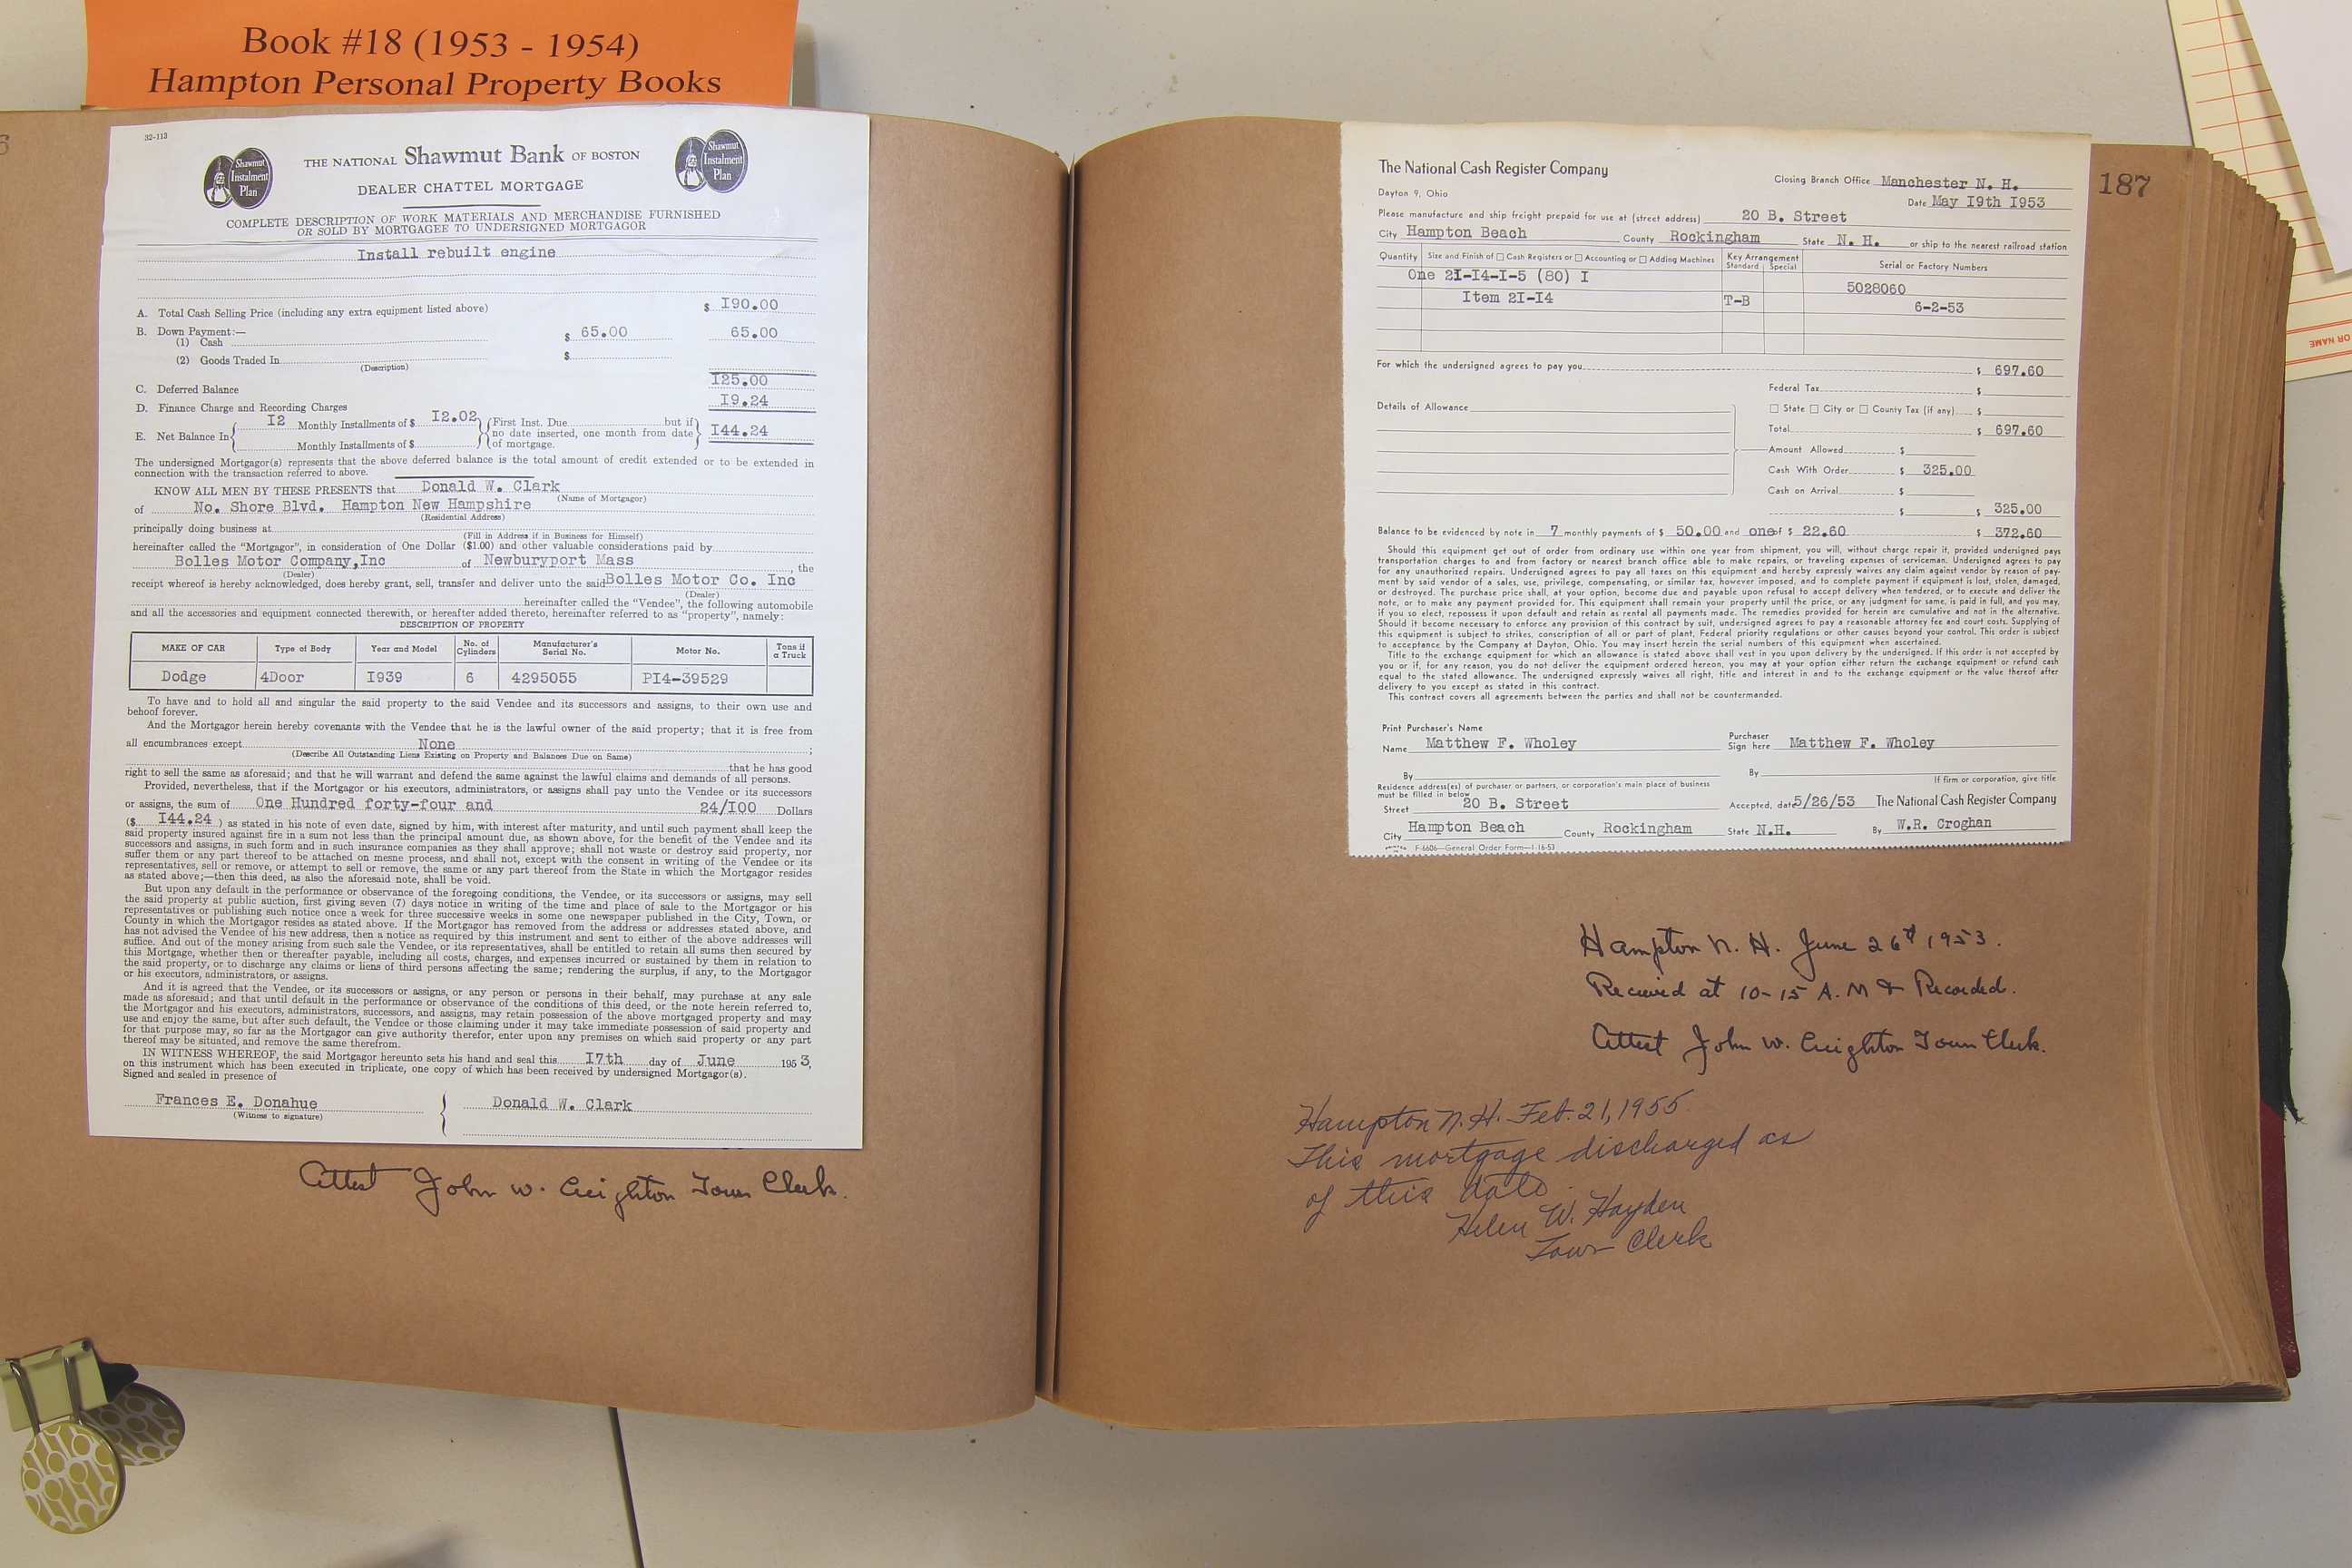 Book #18 (1953 - 1954)
Hampton Personal Property Books
6
32-113
Shawmut Instalment Plan
THE NATIONAL Shawmut Bank OF BOSTON
Shawmut Instalment Plan
DEALER CHATTEL MORTGAGE
COMPLETE DESCRIPTION OF WORK MATERIALS AND MERCHANDISE FURNISHED
OR SOLD BY MORTGAGEE TO UNDERSIGNED MORTGAGOR
Install rebuilt engine
A. Total Cash Selling Price (including any extra equipment listed above) $ I90.00
B. Down Payment:—
(1) Cash $ 65.00 65.00
(2) Goods Traded In $
(Description)
C. Deferred Balance I25.00
D. Finance Charge and Recording Charges I9.24
E. Net Balance In { I2 Monthly Installments of $ I2.02 } { First Inst. Due but if
Monthly Installments of $ no date inserted, one month from date } I44.24
of mortgage.
The undersigned Mortgagor(s) represents that the above deferred balance is the total amount of credit extended or to be extended in
connection with the transaction referred to above.
KNOW ALL MEN BY THESE PRESENTS that Donald W. Clark
(Name of Mortgagor)
of No. Shore Blvd. Hampton New Hampshire
(Residential Address)
principally doing business at
(Fill in Address if in Business for Himself)
hereinafter called the “Mortgagor”, in consideration of One Dollar ($1.00) and other valuable considerations paid by
Bolles Motor Company,Inc of Newburyport Mass , the
(Dealer)
receipt whereof is hereby acknowledged, does hereby grant, sell, transfer and deliver unto the said Bolles Motor Co. Inc
(Dealer)
hereinafter called the “Vendee”, the following automobile
and all the accessories and equipment connected therewith, or hereafter added thereto, hereinafter referred to as “property”, namely:
DESCRIPTION OF PROPERTY
MAKE OF CAR Type of Body Year and Model No. of Cylinders Manufacturer's Serial No. Motor No. Tons if a Truck
Dodge 4Door I939 6 4295055 PI4-39529
To have and to hold all and singular the said property to the said Vendee and its successors and assigns, to their own use and
behoof forever.
And the Mortgagor herein hereby covenants with the Vendee that he is the lawful owner of the said property; that it is free from
all encumbrances except None ;
(Describe All Outstanding Liens Existing on Property and Balances Due on Same)
that he has good
right to sell the same as aforesaid; and that he will warrant and defend the same against the lawful claims and demands of all persons.
Provided, nevertheless, that if the Mortgagor or his executors, administrators, or assigns shall pay unto the Vendee or its successors
or assigns, the sum of One Hundred forty-four and 24/I00 Dollars
($ I44.24 ) as stated in his note of even date, signed by him, with interest after maturity, and until such payment shall keep the
said property insured against fire in a sum not less than the principal amount due, as shown above, for the benefit of the Vendee and its
successors and assigns, in such form and in such insurance companies as they shall approve; shall not waste or destroy said property, nor
suffer them or any part thereof to be attached on mesne process, and shall not, except with the consent in writing of the Vendee or its
representatives, sell or remove, or attempt to sell or remove, the same or any part thereof from the State in which the Mortgagor resides
as stated above;—then this deed, as also the aforesaid note, shall be void.
But upon any default in the performance or observance of the foregoing conditions, the Vendee, or its successors or assigns, may sell
the said property at public auction, first giving seven (7) days notice in writing of the time and place of sale to the Mortgagor or his
representatives or publishing such notice once a week for three successive weeks in some one newspaper published in the City, Town, or
County in which the Mortgagor resides as stated above. If the Mortgagor has removed from the address or addresses stated above, and
has not advised the Vendee of his new address, then a notice as required by this instrument and sent to either of the above addresses will
suffice. And out of the money arising from such sale the Vendee, or its representatives, shall be entitled to retain all sums then secured by
this Mortgage, whether then or thereafter payable, including all costs, charges, and expenses incurred or sustained by them in relation to
the said property, or to discharge any claims or liens of third persons affecting the same; rendering the surplus, if any, to the Mortgagor
or his executors, administrators, or assigns.
And it is agreed that the Vendee, or its successors or assigns, or any person or persons in their behalf, may purchase at any sale
made as aforesaid; and that until default in the performance or observance of the conditions of this deed, or the note herein referred to,
the Mortgagor and his executors, administrators, successors, and assigns, may retain possession of the above mortgaged property and may
use and enjoy the same, but after such default, the Vendee or those claiming under it may take immediate possession of said property and
for that purpose may, so far as the Mortgagor can give authority therefor, enter upon any premises on which said property or any part
thereof may be situated, and remove the same therefrom.
IN WITNESS WHEREOF, the said Mortgagor hereunto sets his hand and seal this I7th day of June 195 3,
on this instrument which has been executed in triplicate, one copy of which has been received by undersigned Mortgagor(s).
Signed and sealed in presence of
Frances E. Donahue } Donald W. Clark
(Witness to signature)
Attest John W. Creighton Town Clerk.
187
The National Cash Register Company
Dayton 9, Ohio
Closing Branch Office Manchester N. H.
Date May I9th I953
Please manufacture and ship freight prepaid for use at (street address) 20 B. Street
City Hampton Beach County Rockingham State N. H. or ship to the nearest railroad station
Quantity Size and Finish of Cash Registers or Accounting or Adding Machines Key Arrangement Standard Special Serial or Factory Numbers
One 2I-I4-I-5 (80) I 5028060
Item 2I-I4 T-B 6-2-53
For which the undersigned agrees to pay you $ 697.60
Federal Tax $
Details of Allowance State City or County Tax (if any) $
Total $ 697.60
Amount Allowed $
Cash With Order $ 325.00
Cash on Arrival $
$ $ 325.00
Balance to be evidenced by note in 7 monthly payments of $ 50.00 and one of $ 22.60 $ 372.60
Should this equipment get out of order from ordinary use within one year from shipment, you will, without charge repair it, provided undersigned pays
transportation charges to and from factory or nearest branch office able to make repairs, or traveling expenses of serviceman. Undersigned agrees to pay
for any unauthorized repairs. Undersigned agrees to pay all taxes on this equipment and hereby expressly waives any claim against vendor by reason of pay-
ment by said vendor of a sales, use, privilege, compensating, or similar tax, however imposed, and to complete payment if equipment is lost, stolen, damaged,
or destroyed. The purchase price shall, at your option, become due and payable upon refusal to accept delivery when tendered, or to execute and deliver the
note, or to make any payment provided for. This equipment shall remain your property until the price, or any judgment for same, is paid in full, and you may,
if you so elect, repossess it upon default and retain as rental all payments made. The remedies provided for herein are cumulative and not in the alternative.
Should it become necessary to enforce any provision of this contract by suit, undersigned agrees to pay a reasonable attorney fee and court costs. Supplying of
this equipment is subject to strikes, conscription of all or part of plant, Federal priority regulations or other causes beyond your control. This order is subject
to acceptance by the Company at Dayton, Ohio. You may insert herein the serial numbers of this equipment when ascertained.
Title to the exchange equipment for which an allowance is stated above shall vest in you upon delivery by the undersigned. If this order is not accepted by
you or if, for any reason, you do not deliver the equipment ordered hereon, you may at your option either return the exchange equipment or refund cash
equal to the stated allowance. The undersigned expressly waives all right, title and interest in and to the exchange equipment or the value thereof after
delivery to you except as stated in this contract.
This contract covers all agreements between the parties and shall not be countermanded.
Print Purchaser's Name
Name Matthew F. Wholey
Purchaser Sign here Matthew F. Wholey
By By If firm or corporation, give title
Residence address(es) of purchaser or partners, or corporation's main place of business
must be filled in below
Street 20 B. Street Accepted, date 5/26/53 The National Cash Register Company
City Hampton Beach County Rockingham State N.H. By W.R. Croghan
F-6606—General Order Form—1-16-53
Hampton N. H. June 26th 1953.
Recieved at 10-15 A.M & Recorded.
Attest John W. Creighton Town Clerk.
Hampton N.H. Feb. 21, 1955
This mortgage discharged as
of this date.
Helen W. Hayden
Town Clerk
OR NAME